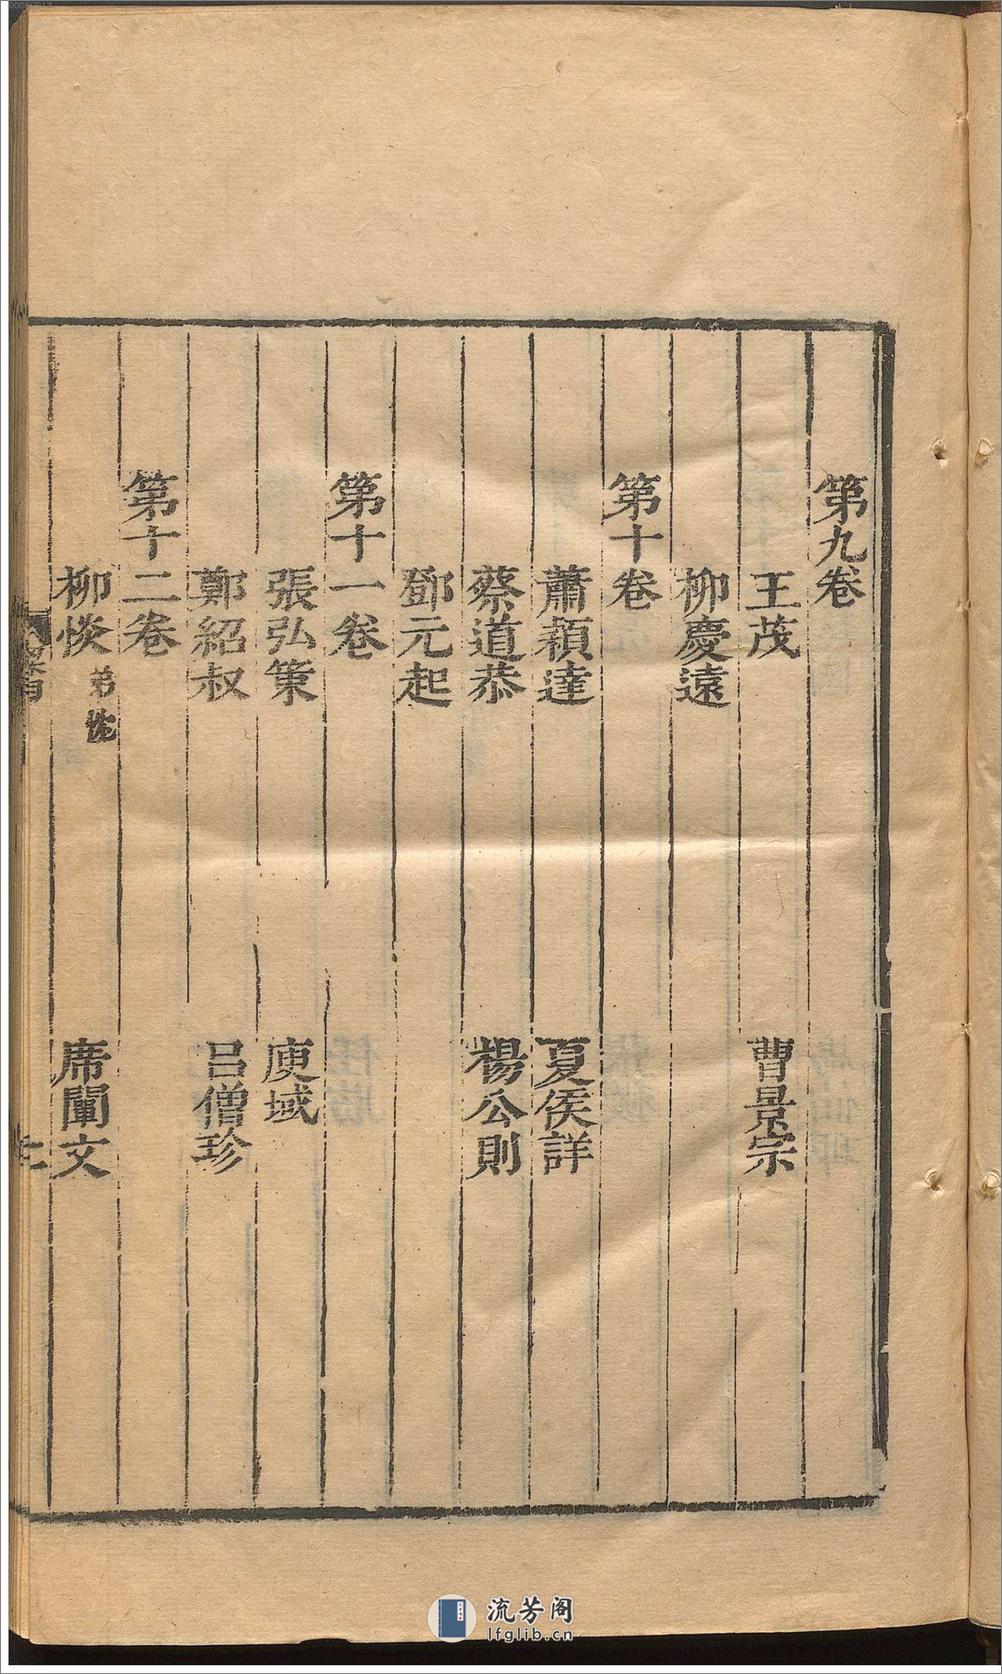 第九卷
王茂 曹景宗
柳慶遠
第十卷
蕭穎達 夏侯詳
蔡道恭 楊公則
鄧元起
第十一卷
張弘策 庾域
鄭紹叔 呂僧珍
第十二卷
柳惔 弟忱 席闡文
流芳阁
lfglib.cn